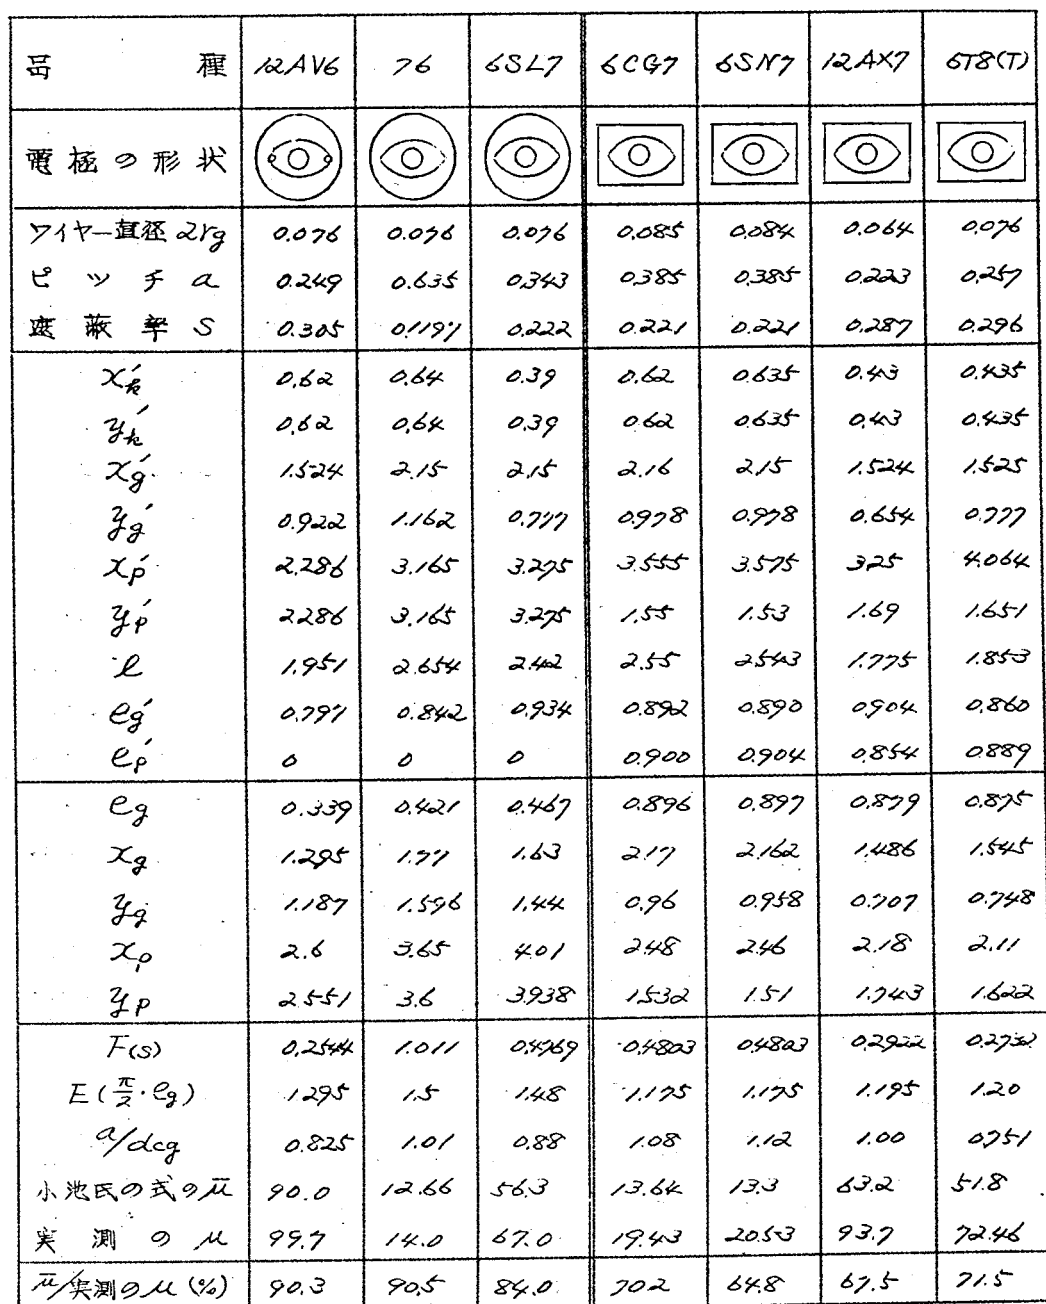 品 種 12AV6 76 6SL7 6CG7 6SN7 12AX7 6T8(T)
電極の形状
ワイヤー直径 2rg 0.076 0.076 0.076 0.085 0.084 0.064 0.076
ピッチ a 0.249 0.635 0.343 0.385 0.385 0.223 0.257
遮蔽率 S 0.305 0.1197 0.222 0.221 0.221 0.287 0.296
x'k 0.62 0.64 0.39 0.62 0.635 0.43 0.435
y'k 0.62 0.64 0.39 0.62 0.635 0.43 0.435
x'g 1.524 2.15 2.15 2.16 2.15 1.524 1.525
y'g 0.922 1.162 0.777 0.978 0.978 0.654 0.777
x'p 2.286 3.165 3.275 3.555 3.575 3.25 4.064
y'p 2.286 3.165 3.275 1.55 1.53 1.69 1.651
l 1.951 2.654 2.42 2.55 2.543 1.775 1.853
e'g 0.797 0.842 0.934 0.892 0.890 0.904 0.860
e'p 0 0 0 0.900 0.904 0.854 0.889
eg 0.339 0.421 0.467 0.896 0.897 0.879 0.875
xg 1.295 1.77 1.63 2.17 2.162 1.486 1.545
yg 1.187 1.596 1.44 0.96 0.958 0.707 0.748
xp 2.6 3.65 4.01 2.48 2.46 2.18 2.11
yp 2.551 3.6 3.938 1.532 1.51 1.743 1.622
F(s) 0.2544 1.011 0.4769 0.4803 0.4803 0.2922 0.2732
E(π/2·eg) 1.295 1.5 1.48 1.175 1.175 1.195 1.20
a/dcg 0.825 1.01 0.88 1.08 1.12 1.00 0.751
小池氏の式のμ̄ 90.0 12.66 56.3 13.64 13.3 63.2 51.8
実測のμ 99.7 14.0 67.0 19.43 20.53 93.7 72.46
μ̄/実測のμ (%) 90.3 90.5 84.0 70.2 64.8 67.5 71.5